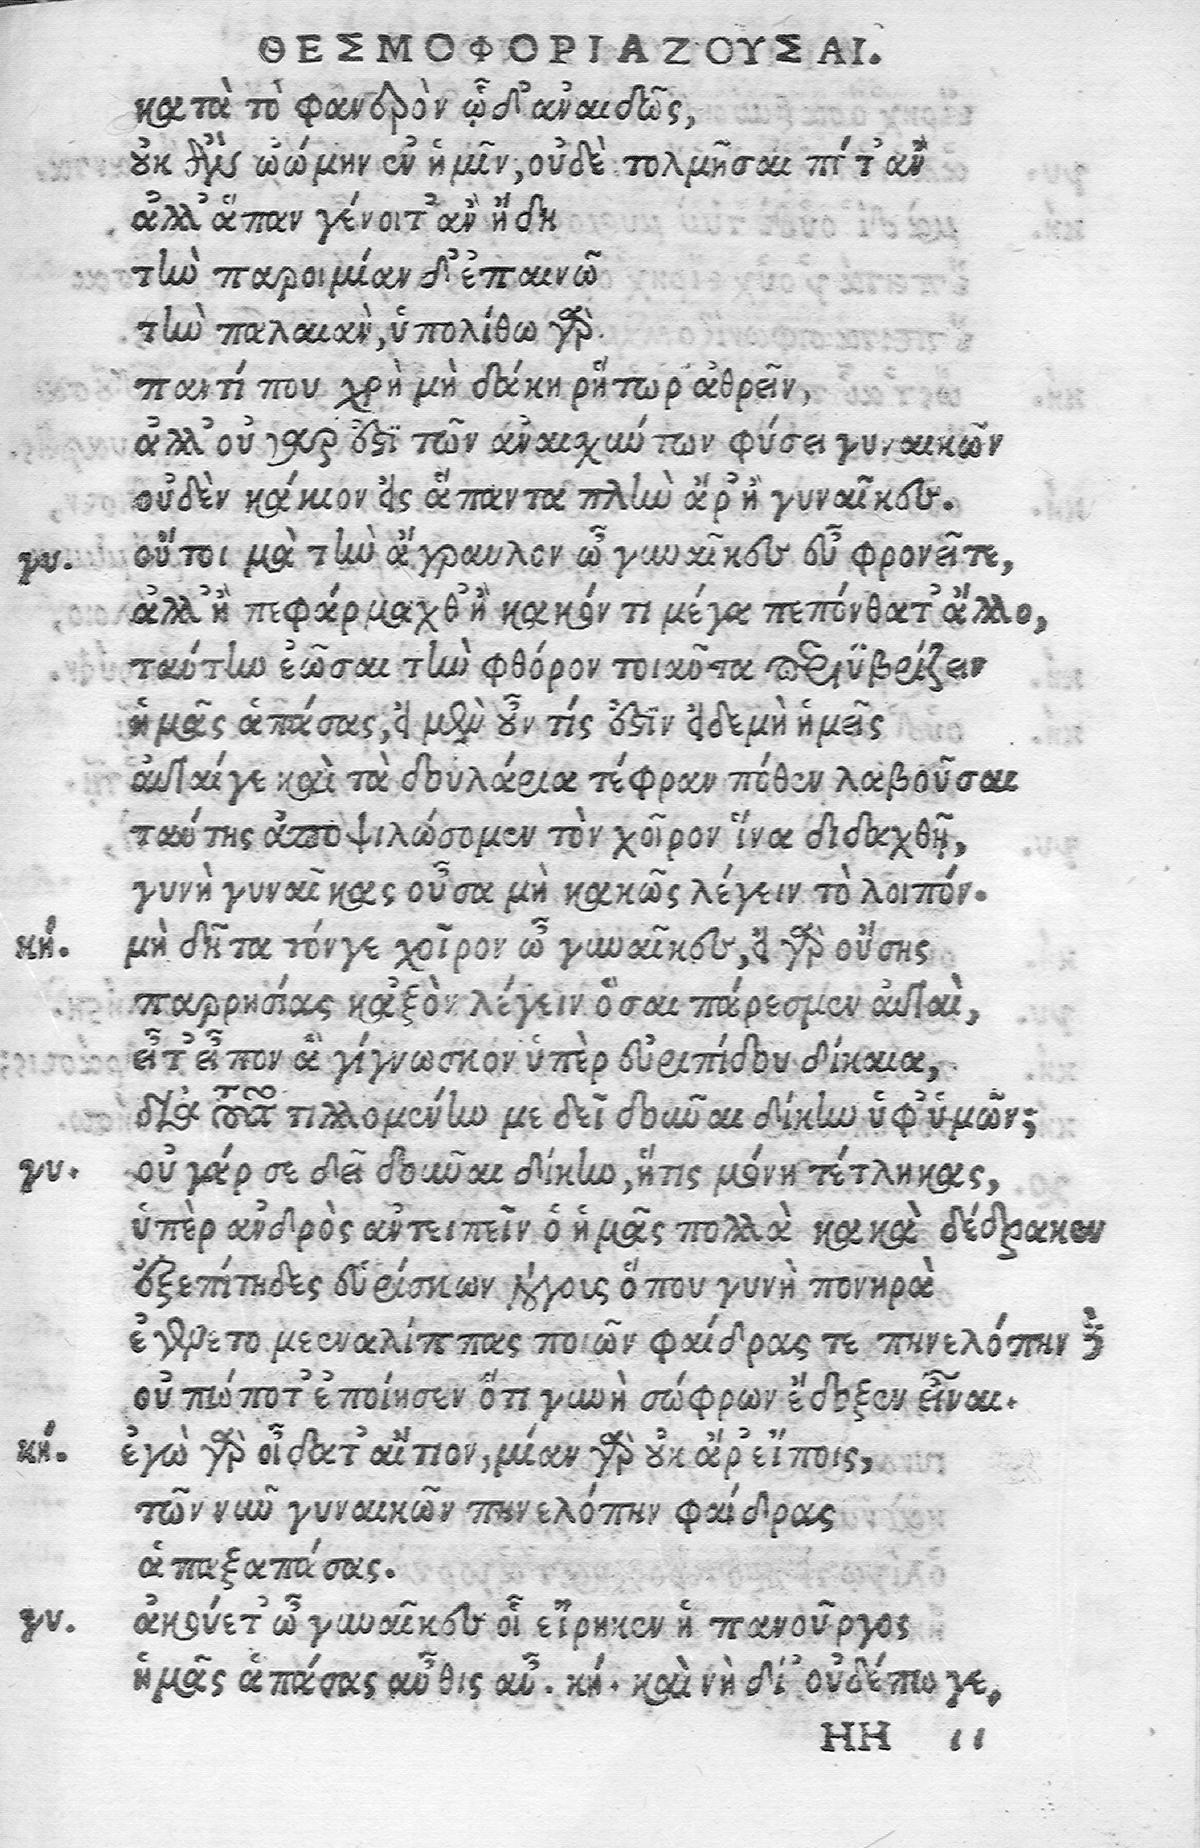 ΘΕΣΜΟΦΟΡΙΑΖΟΥΣΑΙ.
κατὰ τὸ φανερὸν ὧδ' ἀναιδῶς,
οὐκ ἂν ᾠόμην ἐν ἡμῖν, οὐδὲ τολμῆσαι πίτ' ἂν
ἀλλ' ἅπαν γένοιτ' ἂν ἤδη
τὴν παροιμίαν δ' ἐπαινῶ
τὴν παλαιὰν, ὑπολίθω γὰρ
παντί που χρὴ μὴ δάκη ῥήτωρ ἀθρεῖν,
ἀλλ' οὐ γαρ ἐστὶ τῶν ἀναισχύντων φύσει γυναικῶν
οὐδὲν κάκιον εἰς ἅπαντα πλὴν ἄρ' ἢ γυναῖκες.
γυ. οὔτοι μὰ τὴν ἄγραυλον ὦ γυναῖκες εὖ φρονεῖτε,
ἀλλ' ἢ πεφάρμαχθ' ἢ κακόν τι μέγα πεπόνθατ' ἄλλο,
ταύτην ἐῶσαι τὴν φθόρον τοιαῦτα περιϋβρίζειν
ἡμᾶς ἁπάσας, εἰ μὲν οὖν τίς ἐστὶν εἰδεμὴ ἡμεῖς
αὐταίγε καὶ τὰ δουλάρια τέφραν πόθεν λαβοῦσαι
ταύτης ἀποψιλώσομεν τὸν χοῖρον ἵνα διδαχθῇ,
γυνὴ γυναῖκας οὖσα μὴ κακῶς λέγειν τὸ λοιπόν.
κή. μὴ δῆτα τόνγε χοῖρον ὦ γυναῖκες, εἰ γὰρ οὔσης
παρρησίας κἀξὸν λέγειν ὅσαι πάρεσμεν αὐταὶ,
εἶτ' εἶπον ἃ γίγνωσκον ὑπὲρ εὐριπίδου δίκαια,
διὰ τοῦτο τιλλομένην με δεῖ δοῦναι δίκην ὑφ' ὑμῶν;
γυ. οὐ γάρ σε δεῖ δοῦναι δίκην, ἥτις μόνη τέτληκας,
ὑπὲρ ἀνδρὸς ἀντειπεῖν ὃ ἡμᾶς πολλὰ κακὰ δέδρακεν
ἐξεπίτηδες εὑρίσκων λόγοις ὅπου γυνὴ πονηρὰ
ἐγένετο μεναλίππας ποιῶν φαίδρας τε πηνελόπην δὲ
οὐ πώποτ' ἐποίησεν ὅτι γυνὴ σώφρων ἔδοξεν εἶναι.
κή. ἐγὼ γὰρ οἶδα τ' αἴτιον, μίαν γὰρ οὐκ ἄρ' εἴποις,
τῶν νῦν γυναικῶν πηνελόπην φαίδρας
ἁπαξαπάσας.
γυ. ἀκούετ' ὦ γυναῖκες οἷ εἴρηκεν ἡ πανοῦργος
ἡμᾶς ἁπάσας αὖθις αὖ. κή. καὶ νὴ δί' οὐδέπω γε,
ΗΗ ιι